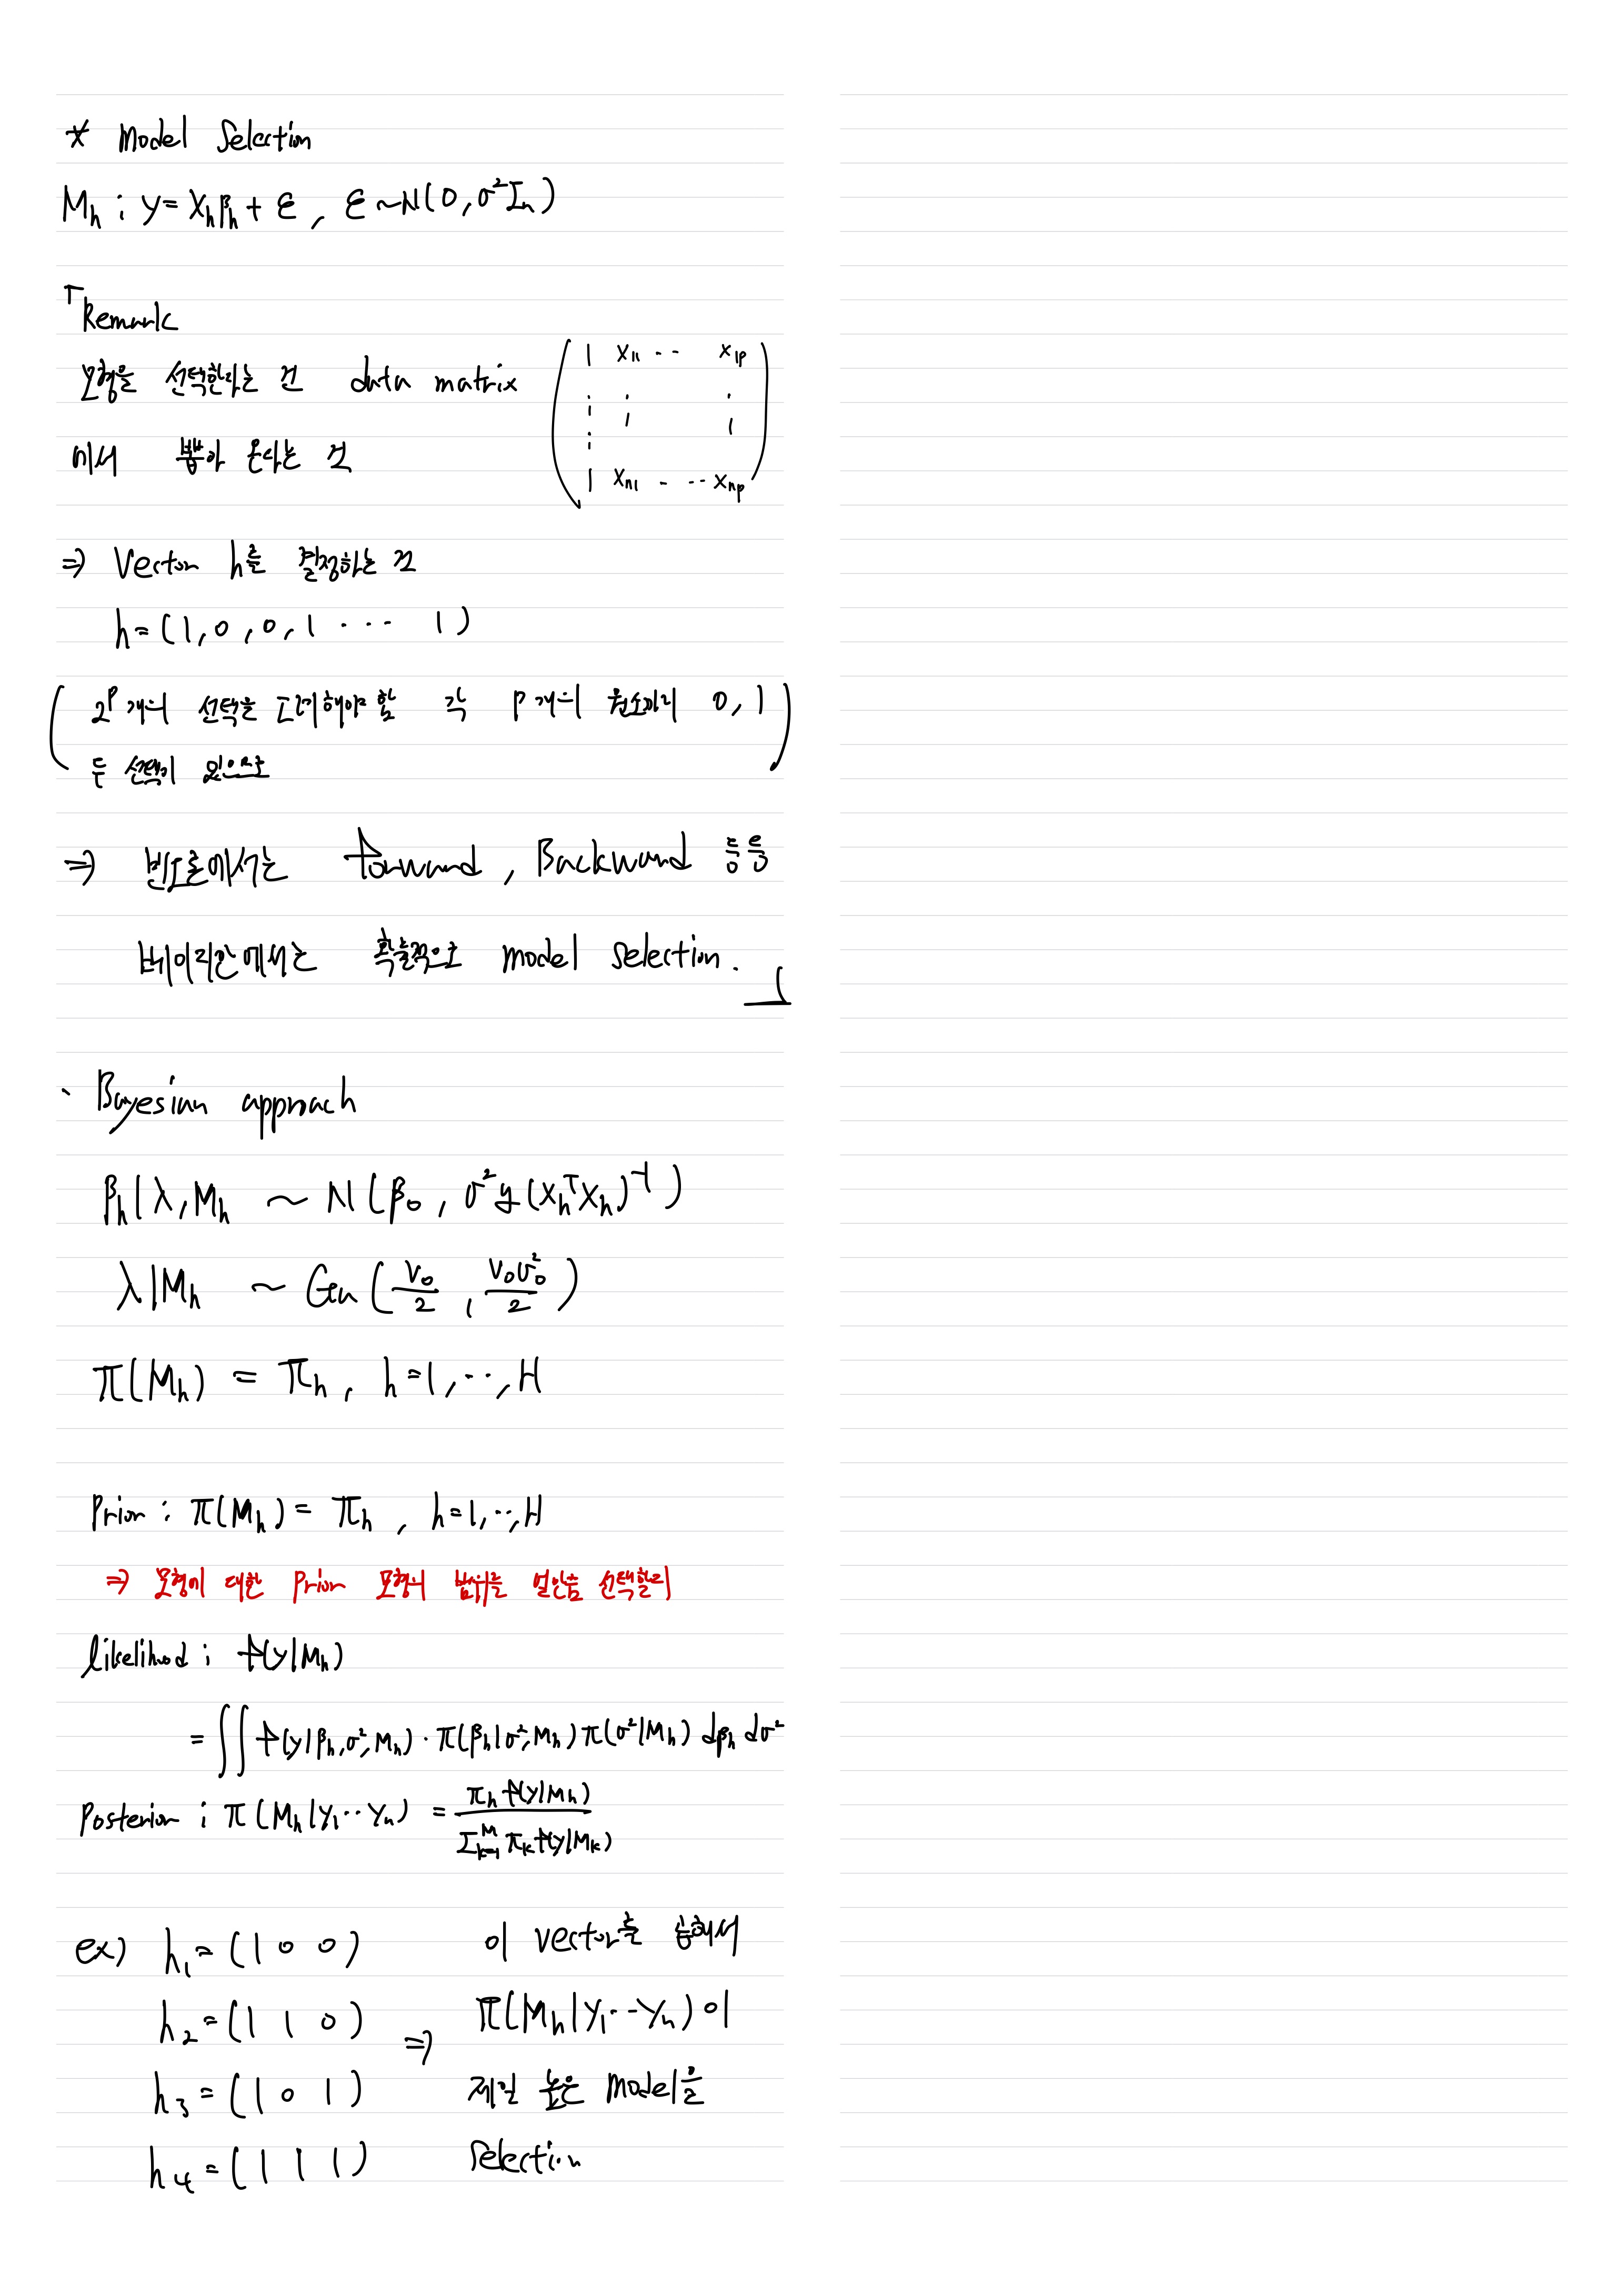 * Model Selection
M_h : y = X_h β_h + ε, ε ~ N(0, σ² I_n)
「Remark
모형을 선택한다는 건 data matrix
( 1 x_11 ... x_1p
⋮ ⋮ ⋮
1 x_n1 ... x_np )
에서 뽑아 온다는 것
⇒ Vector h를 결정하는 것
h = (1, 0, 0, 1 ... 1)
( 2^p개의 선택을 고려해야 함 각 p개의 원소마다 0, 1
두 선택이 있으므로 )
⇒ 빈도론에서는 forward, Backward 등등
베이지안에서는 확률적으로 model selection. 」
· Bayesian approach
β_h | λ, M_h ~ N(β_0, σ² g (X_h^T X_h)^-1)
λ | M_h ~ Ga(ν_0/2, ν_0 σ_0²/2)
π(M_h) = π_h, h=1, .., H
Prior : π(M_h) = π_h, h=1, .., H
⇒ 모형에 대한 Prior 모형의 범위를 얼만큼 선택할지
likelihood : f(y|M_h)
= ∫∫ f(y|β_h, σ², M_h) · π(β_h|σ², M_h) π(σ²|M_h) dβ_h dσ²
Posterior : π(M_h|y_1 .. y_n) = π_h f(y|M_h) / Σ_{k=1}^M π_k f(y|M_k)
ex) h_1 = (1 0 0) 이 vector를 통해서
h_2 = (1 1 0) ⇒ π(M_h|y_1 .. y_n) 이
h_3 = (1 0 1) 제일 높은 model을
h_4 = (1 1 1) Selection